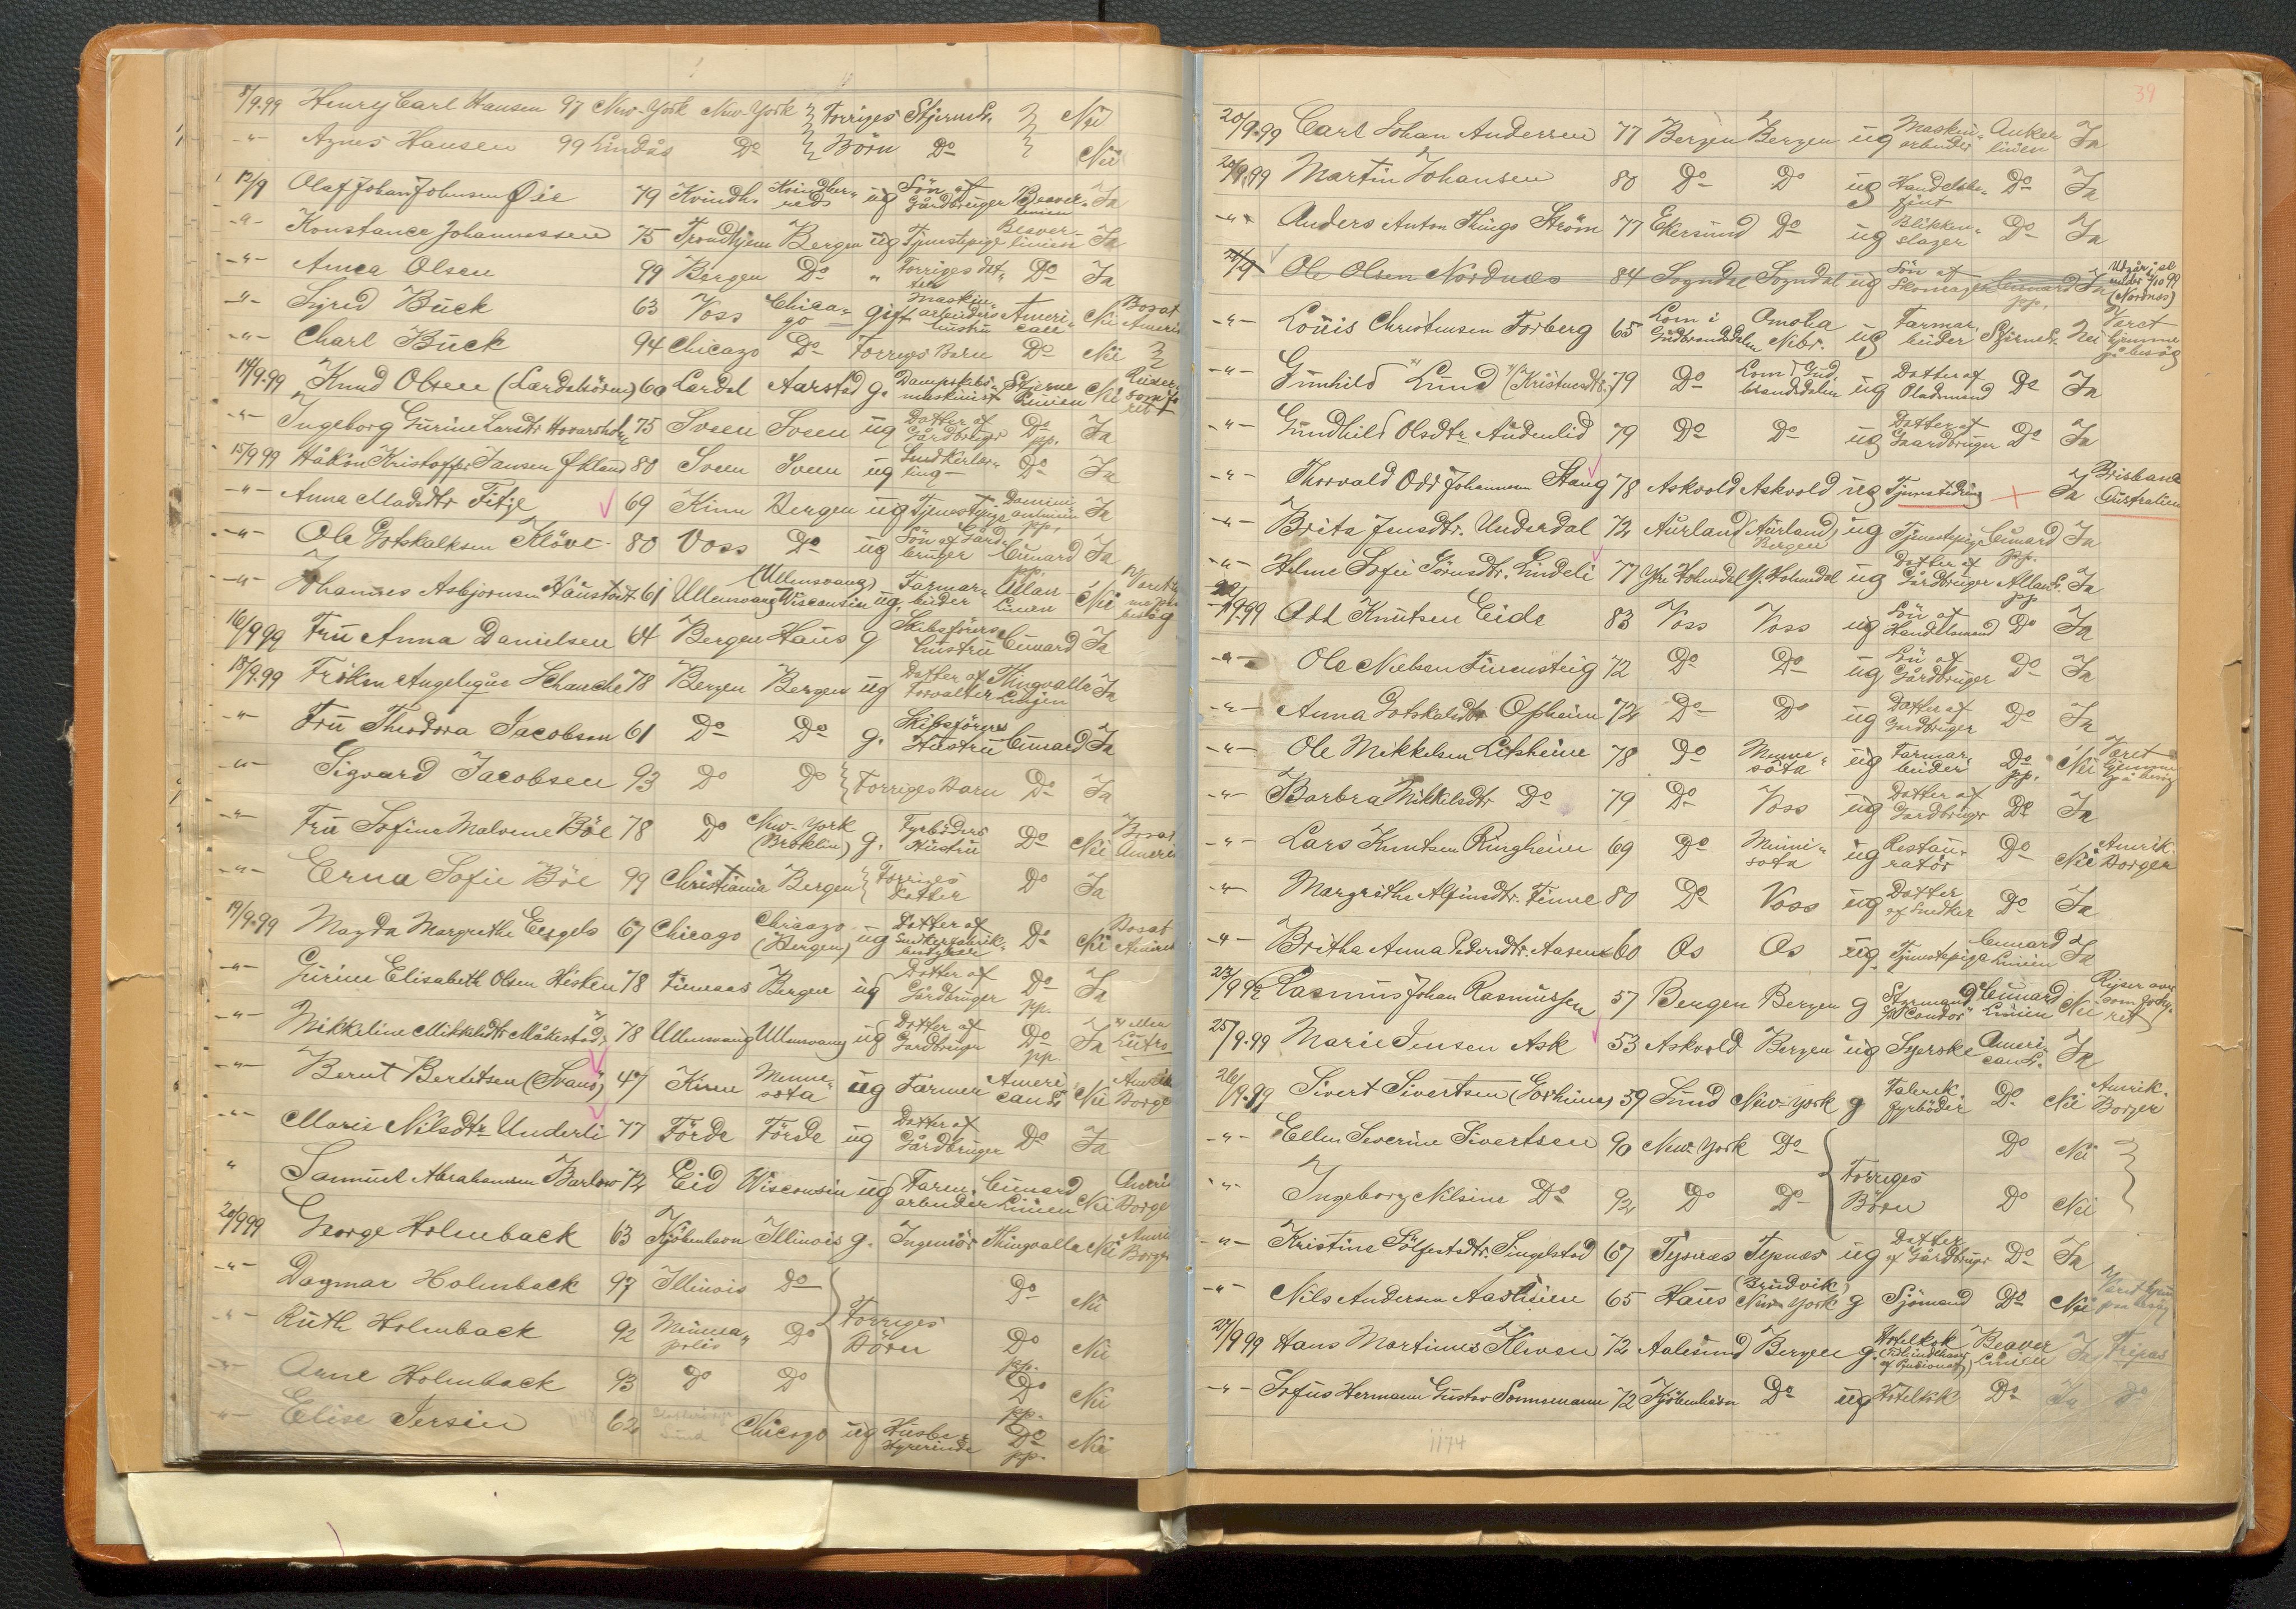 8/9.99 Henry Carl Hansen 97 New-York New-York Forriges Stjernel. Nei
-"- Agnes Hansen 99 Lindås Do Börn Do Nei
13/9 Olaf Johan Johnsen Øie 79 Kvindh. Kvindher-reds ug Sön af Gårdbruger Beaver-linien Ja
-"- Konstance Johannessen 75 Trondhjem Bergen ug Tjenestepige Beaver-linien Ja
-"- Anna Olsen 99 Bergen Do " Forriges dat-ter Do Ja
-"- Sigrid Buck 63 Voss Chica-go gift Maskin-arbeiders hustru Ameri-can Nei Bosat Amerik
-"- Charl Buck 94 Chicago Do Forriges Barn Do Nei
14/9.99 Knud Olsen (Lærdalsören) 60 Lærdal Aarstad g. Dampskibs-maskinist Stjerne Linien Nei Reiser som fo ret
-"- Ingeborg Gurine Larsdtr Hovarsholm 75 Sveen Sveen ug Datter af Gårdbruger Do pp. Ja
15/9 99 Håkon Kristoffer Jansen Økland 80 Sveen Sveen ug Snedkerlær-ling Do Ja
-"- Anna Madsdtr Fitje 69 Kinn Bergen ug Tjenestepige Domini-onlinien pp. Ja
-"- Ole Gotskalksen Klöve 80 Voss Do ug Sön af Gård-bruger Cunard pp. Ja
-"- Johannes Asbjornsen 61 Ullensvang (Ullensvang) Wisconsin ug. Farmar-beider Allan-Linien Nei besög
16/9 99 Fru Anna Danielsen 64 Bergen Haus g Skibsförers hustru Cunard Ja
18/9.99 Fröken Angelique Schanche 78 Bergen Bergen ug Datter af Forvalter Thingvalla Linjen Ja
-"- Fru Theodora Jacobsen 61 Do Do g. Skibsförers Hustru Cunard Ja
-"- Sigvard Jacobsen 93 Do Do Forriges Barn Do Ja
-"- Fru Sofine Malvine Böe 78 Do New-York (Broklin) g. Fyrböders Hustru Do Nei Bosat Ameri
-"- Erna Sofie Böe 99 Christiania Bergen Forriges Datter Do Ja
19/9.99 Magda Margrethe Engels 67 Chicago Chicago (Bergen) ug Datter af Do Nei Bosat Amerik
-"- Gurine Elisabeth Olsen Hisken 78 Finnaas Bergen ug Datter af Gårdbruger Do pp. Ja
-"- Mikkeline Mikkelsdtr Måkestad 78 Ullensvang Ullensvang ug Datter af Gardbruger Do pp. Ja eller Lutro
-"- Bernt Berletsen (Svanö) 47 Kinn Minne-sota ug Farmer Ameri-canL Nei Amerik Borge
-"- Marie Nilsdtr Underli 77 Förde Förde ug Datter af Gårdbruger Do Ja
" Samuel Abrahamsen Barlow 72 Eid Wisconsin ug Farm-arbeider Cunard Linien Nei Ameri Borge
20/9 99 George Holmback 63 Kjöbenhavn Illinois g. Ingeniör Thingvalla Nei Ameri Borger
-"- Dagmar Holmback 97 Illinois Do Do Nei
-"- Ruth Holmback 92 Minnea-polis Do Forriges Börn Do pp. Nei
-"- Arne Holmback 93 Do Do Do pp. Nei
-"- Elise Jersin 62 Chicago ug Husbe-styrerinde Do pp. Nei
39
20/9.99 Carl Johan Andersen 77 Bergen Bergen ug Maskin-arbeider Anker linien Ja
20/9.99 Martin Johansen 80 Do Do ug Handelsbe-tjent Do Ja
-"- Anders Anton Thingo Ström 77 Ekersund Do ug Blikken-slager Do Ja
21/9 Ole Olsen Nordnæs 84 Sogndal Sogndal ug Sön af Skomager Cunard pp. Ja Udgår, se under 4/10 99 (Nordnes)
-"- Louis Christensen Forberg 65 Lom i Gudbrandsdalen Omaha Nebr. ug Farmar-beider Stjernel. Nei Veret hjemme på besög
-"- Gunhild Lund (Kristensdtr.) 79 Do Lom Gud-brandsdalen ug Datter af Pladsmand Do Ja
-"- Gundhild Olsdtr Audenlid 79 Do Do ug Datter af Gaardbruger Do Ja
-"- Thorvald Odd Johannesen Stang 78 Askvold Askvold ug Tjenestedreng Ja Brisbane Australien
-"- Brita Jensdtr. Underdal 72 Aurland (Aurland) Bergen ug Tjenestepige Cunard pp. Ja
-"- Helene Sofie Jörnsdtr. Lindeli 77 Ytre Holmedal Y. Holmedal ug Datter af Gårdbruger AllanL. pp Ja
22/9.99 Odd Knutsen Eide 83 Voss Voss ug Sön af Handelsmand Do Ja
-"- Ole Nielsen Finensteig 72 Do Do ug Sön af Gårdbruger Do Ja
-"- Anna Gotskalsdtr Opheim 72 Do Do ug Datter af Gardbruger Do Ja
-"- Ole Mikkelsen Litsheim 78 Do Minne-sota ug Farmar-beider Do pp. Nei Veret hjemme på besög
-"- Barbra Mikkelsdtr Do 79 Do Voss ug Datter af Gardbruger Do Ja
-"- Lars Knutsen Ringheim 69 Do Minne-sota ug Restau-ratör Do Nei Amrik. Borger
-"- Margrethe Alfinsdtr. Finne 80 Do Voss ug Datter af Snedker Do Ja
-"- Britha Anna Pedersdtr. Aasen 60 Os Os ug. Tjenestepige Cunard Linien Ja
23/9 Rasmus Johan Rasmussen 57 Bergen Bergen g Styrmand "Condor" Cunard Linien Nei Rejser over som ret
25/9.99 Marie Jensen Ask 53 Askvold Bergen ug Syerske Ameri-canL. Ja
26/9.99 Sivert Sivertsen (Forheim) 59 Sund New-York g Fabrik-fyrböder Do Nei Amrik. Borger
-"- Ellen Severine Sivertsen 90 New-York Do Do Nei
-"- Ingeborg Nilsine Do 92 Do Do Forriges Börn Do Nei
-"- Kristine Sölfestsdtr. Singelstad 67 Tysnæs Tysnæs ug Datter af Gårdbruger Do Ja
-"- Nils Andersen 65 Haus (Brudvik) New York g Sjömand Do Nei
27/9 99 Hans Martinus Klevsen 72 Aalesund Bergen g. Hotelkok Beaver Linien Ja Tripas
-"- Sofus Hermann Gustav Sonnemann 72 Kjöbenhavn Do ug Hotelkok Do Ja do
1174